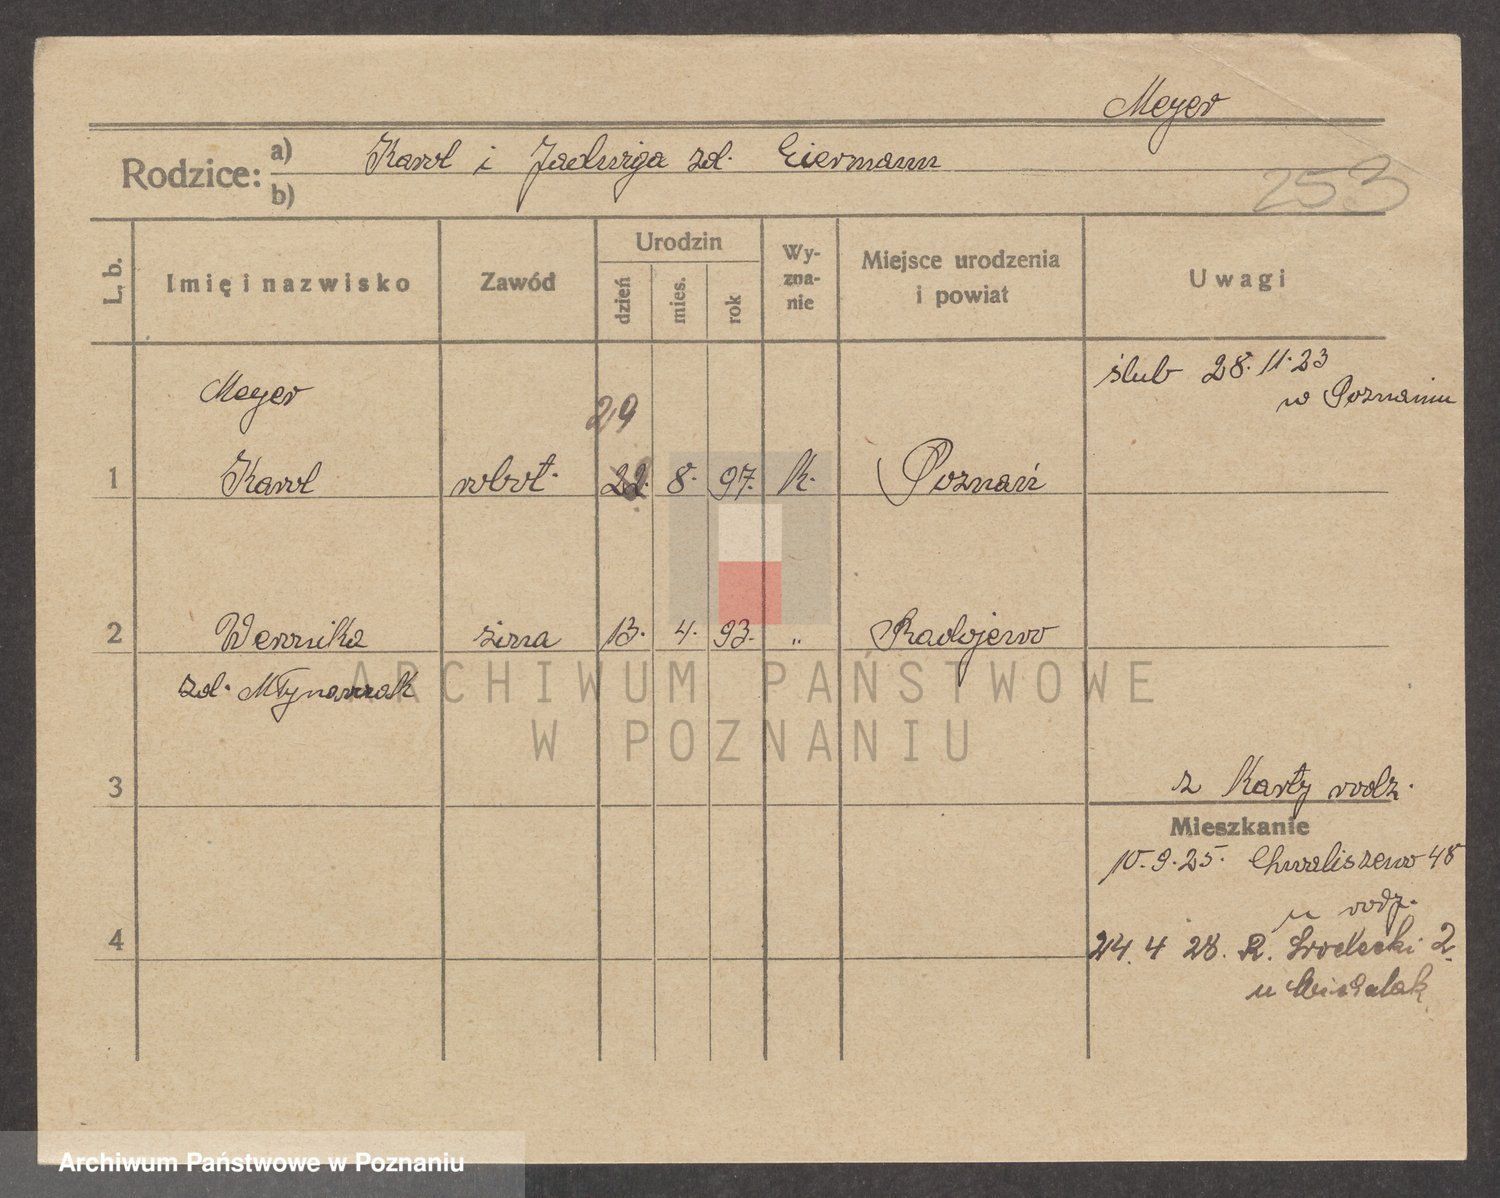 Meyer
Rodzice:
a) Karol i Jadwiga zd. Eiermann
b)
253
L. b.
Imię i nazwisko
Zawód
Urodzin
dzień
mies.
rok
Wy-
zna-
nie
Miejsce urodzenia
i powiat
Uwagi
Meyer
29
ślub 28. 11. 23
w Poznaniu
1 Karol robot. 22. 8. 97. k. Poznań
2 Weronika żona 13. 4. 93. " Radojewo
zd. Młynarzak
3
z Karty rodz.
Mieszkanie
10. 9. 25. Chwaliszewo 48
u rodz.
4
24. 4 28. R. Srodecki 2.
u Michalak
ARCHIWUM PAŃSTWOWE
W POZNANIU
Archiwum Państwowe w Poznaniu